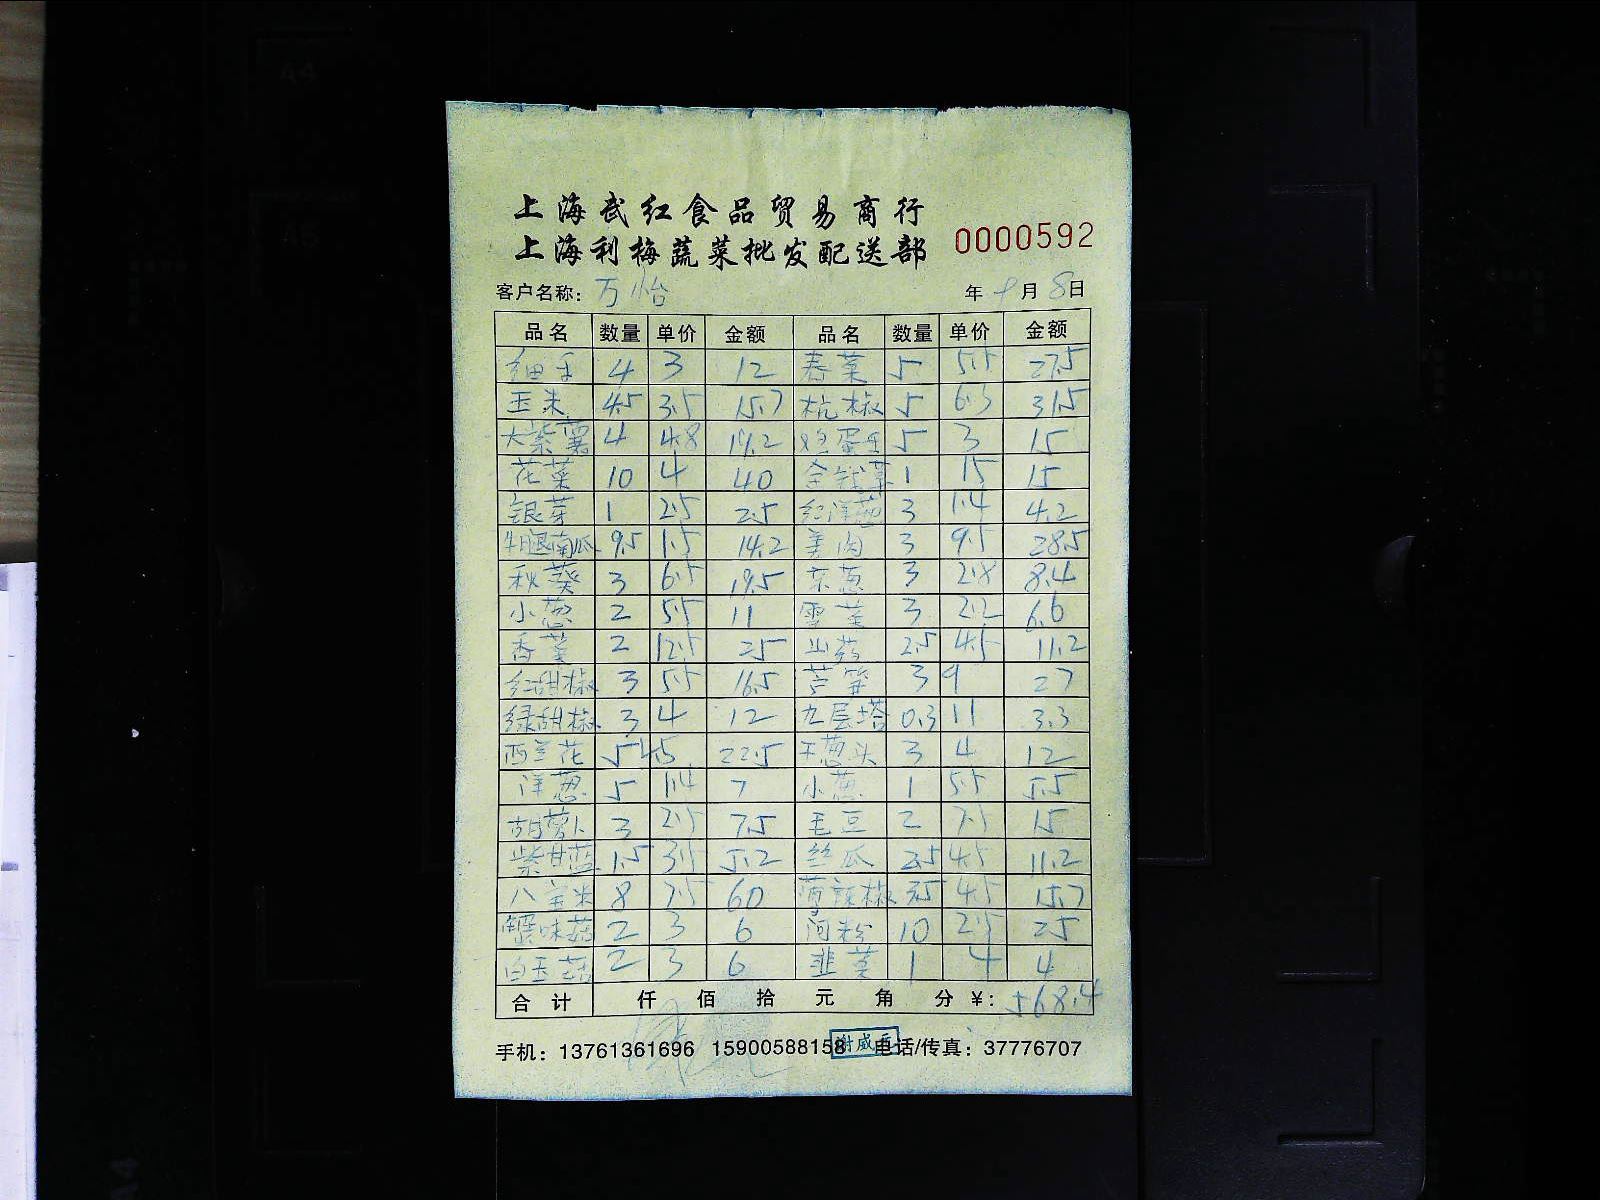 上海武红食品贸易商行
上海利梅蔬菜批发配送部 0000592
客户名称: 万怡 年 9月 8日
品名 数量 单价 金额 品名 数量 单价 金额
4 3 12 春菜 5 5.5 27.5
玉米 4.5 3.5 15.7 杭椒 5 6.3 31.5
大紫薯 4 4.8 19.2 5 3 15
花菜 10 4 40 金钱草 1 15 15
银芽 1 2.5 2.5 红洋葱 3 1.4 4.2
牛腿南瓜 9.5 1.5 14.2 3 9.5 28.5
秋葵 3 6.5 19.5 京葱 3 2.8 8.4
小葱 2 5.5 11 雪菜 3 2.2 6.6
香菜 2 12.5 25 山药 2.5 4.5 11.2
红甜椒 3 5.5 16.5 芦笋 3 9 27
绿甜椒 3 4 12 九层塔 0.3 11 3.3
西兰花 5 4.5 22.5 干葱头 3 4 12
洋葱 5 1.4 7 小葱 1 5.5 5.5
胡萝卜 3 2.5 7.5 毛豆 2 7.5 15
紫甘蓝 1.5 3.5 5.2 丝瓜 2.5 4.5 11.2
八宝米 8 7.5 60 薄辣椒 3.5 4.5 15.7
蟹味菇 2 3 6 河粉 10 2.5 25
白玉菇 2 3 6 韭菜 1 4 4
合计 仟 佰 拾 元 角 分 ¥: 568.4
手机: 13761361696 15900588158 电话/传真: 37776707